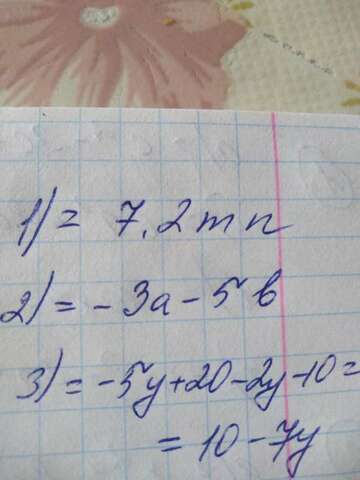 1) = 7,2mn
2) = -3a - 5b
3) = -5y+20-2y-10=
= 10-7y